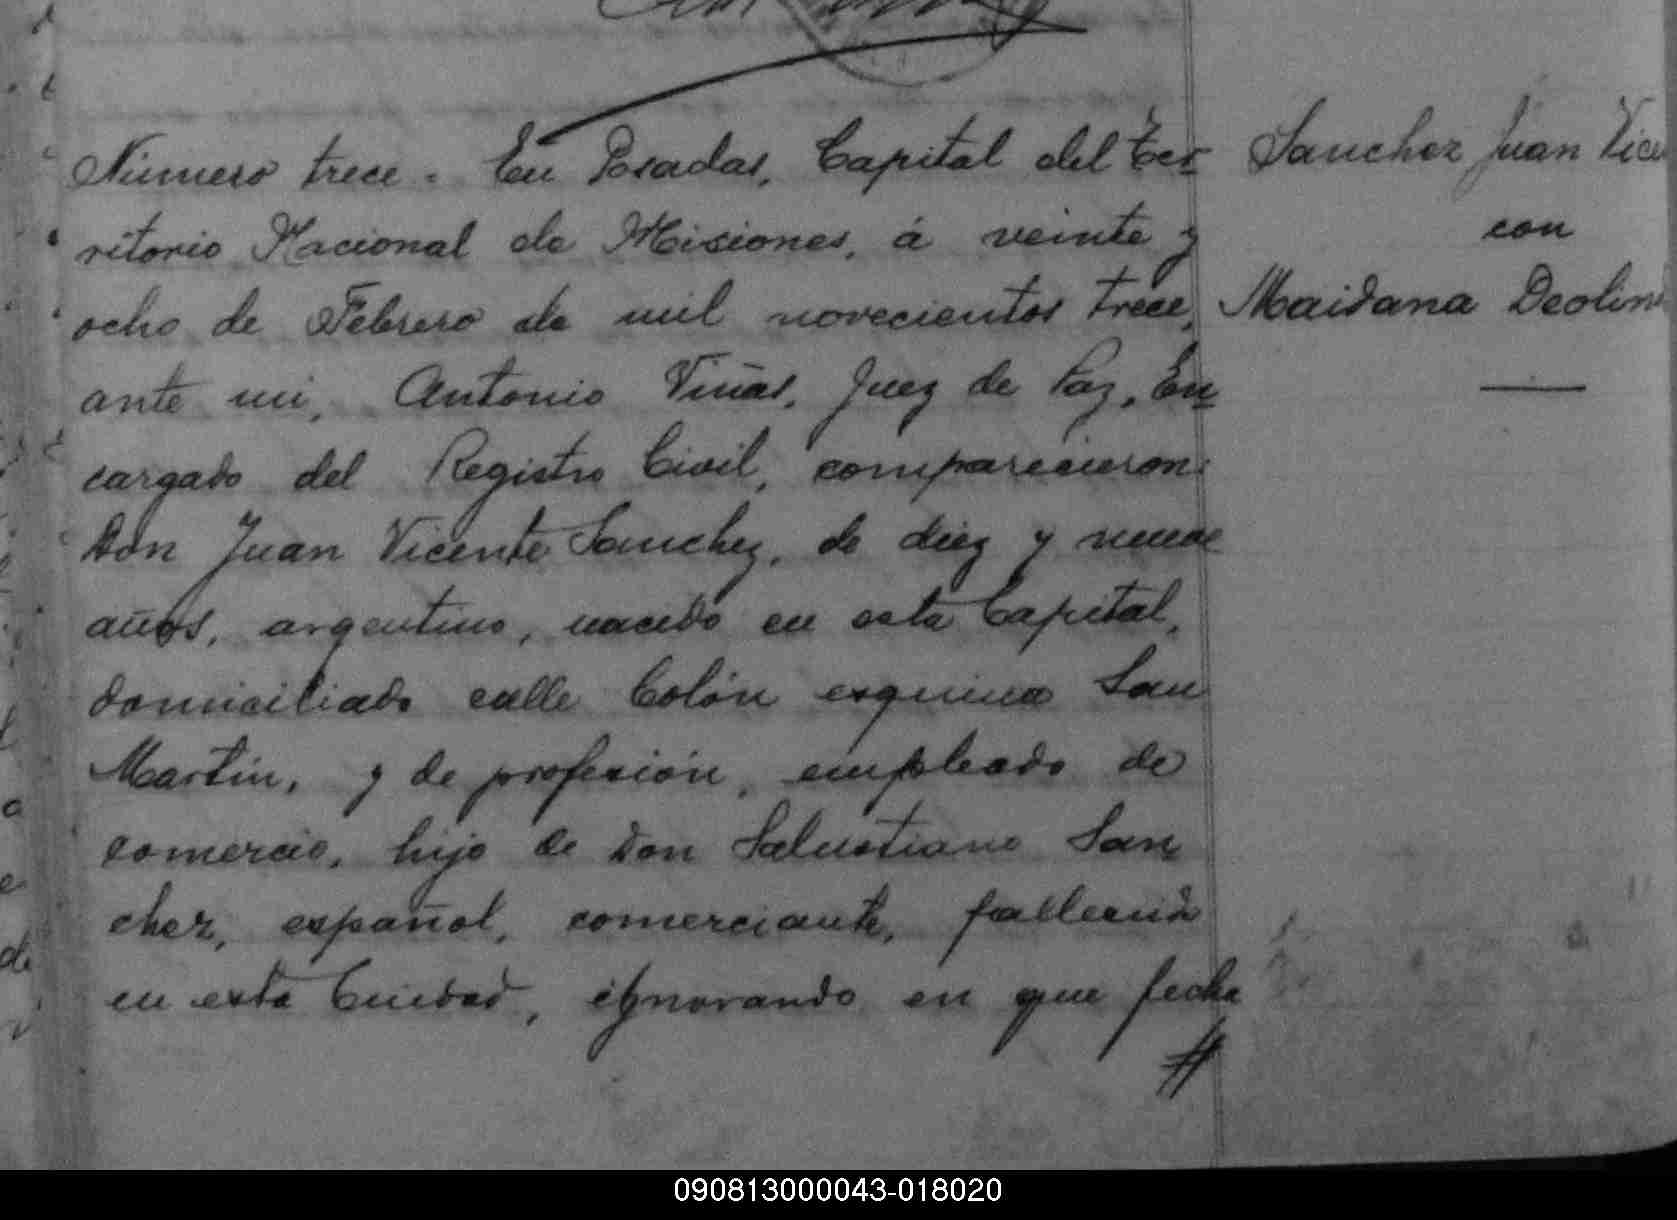 Número trece. En Posadas, Capital del Ter-
ritorio Nacional de Misiones, á veinte y
ocho de Febrero de mil novecientos trece,
ante mi, Antonio Viñas, Juez de Paz, En-
cargado del Registro Civil, comparecieron:
Don Juan Vicente Sanchez, de diez y nueve
años, argentino, nacido en esta Capital,
domiciliado calle Colón esquina San
Martín, y de profesión, empleado de
comercio, hijo de Don Salustiano San
chez, español, comerciante, falleció
en esta Ciudad, ignorando en que fecha
Sanchez Juan Vice
con
Maidana Deolin
090813000043-018020